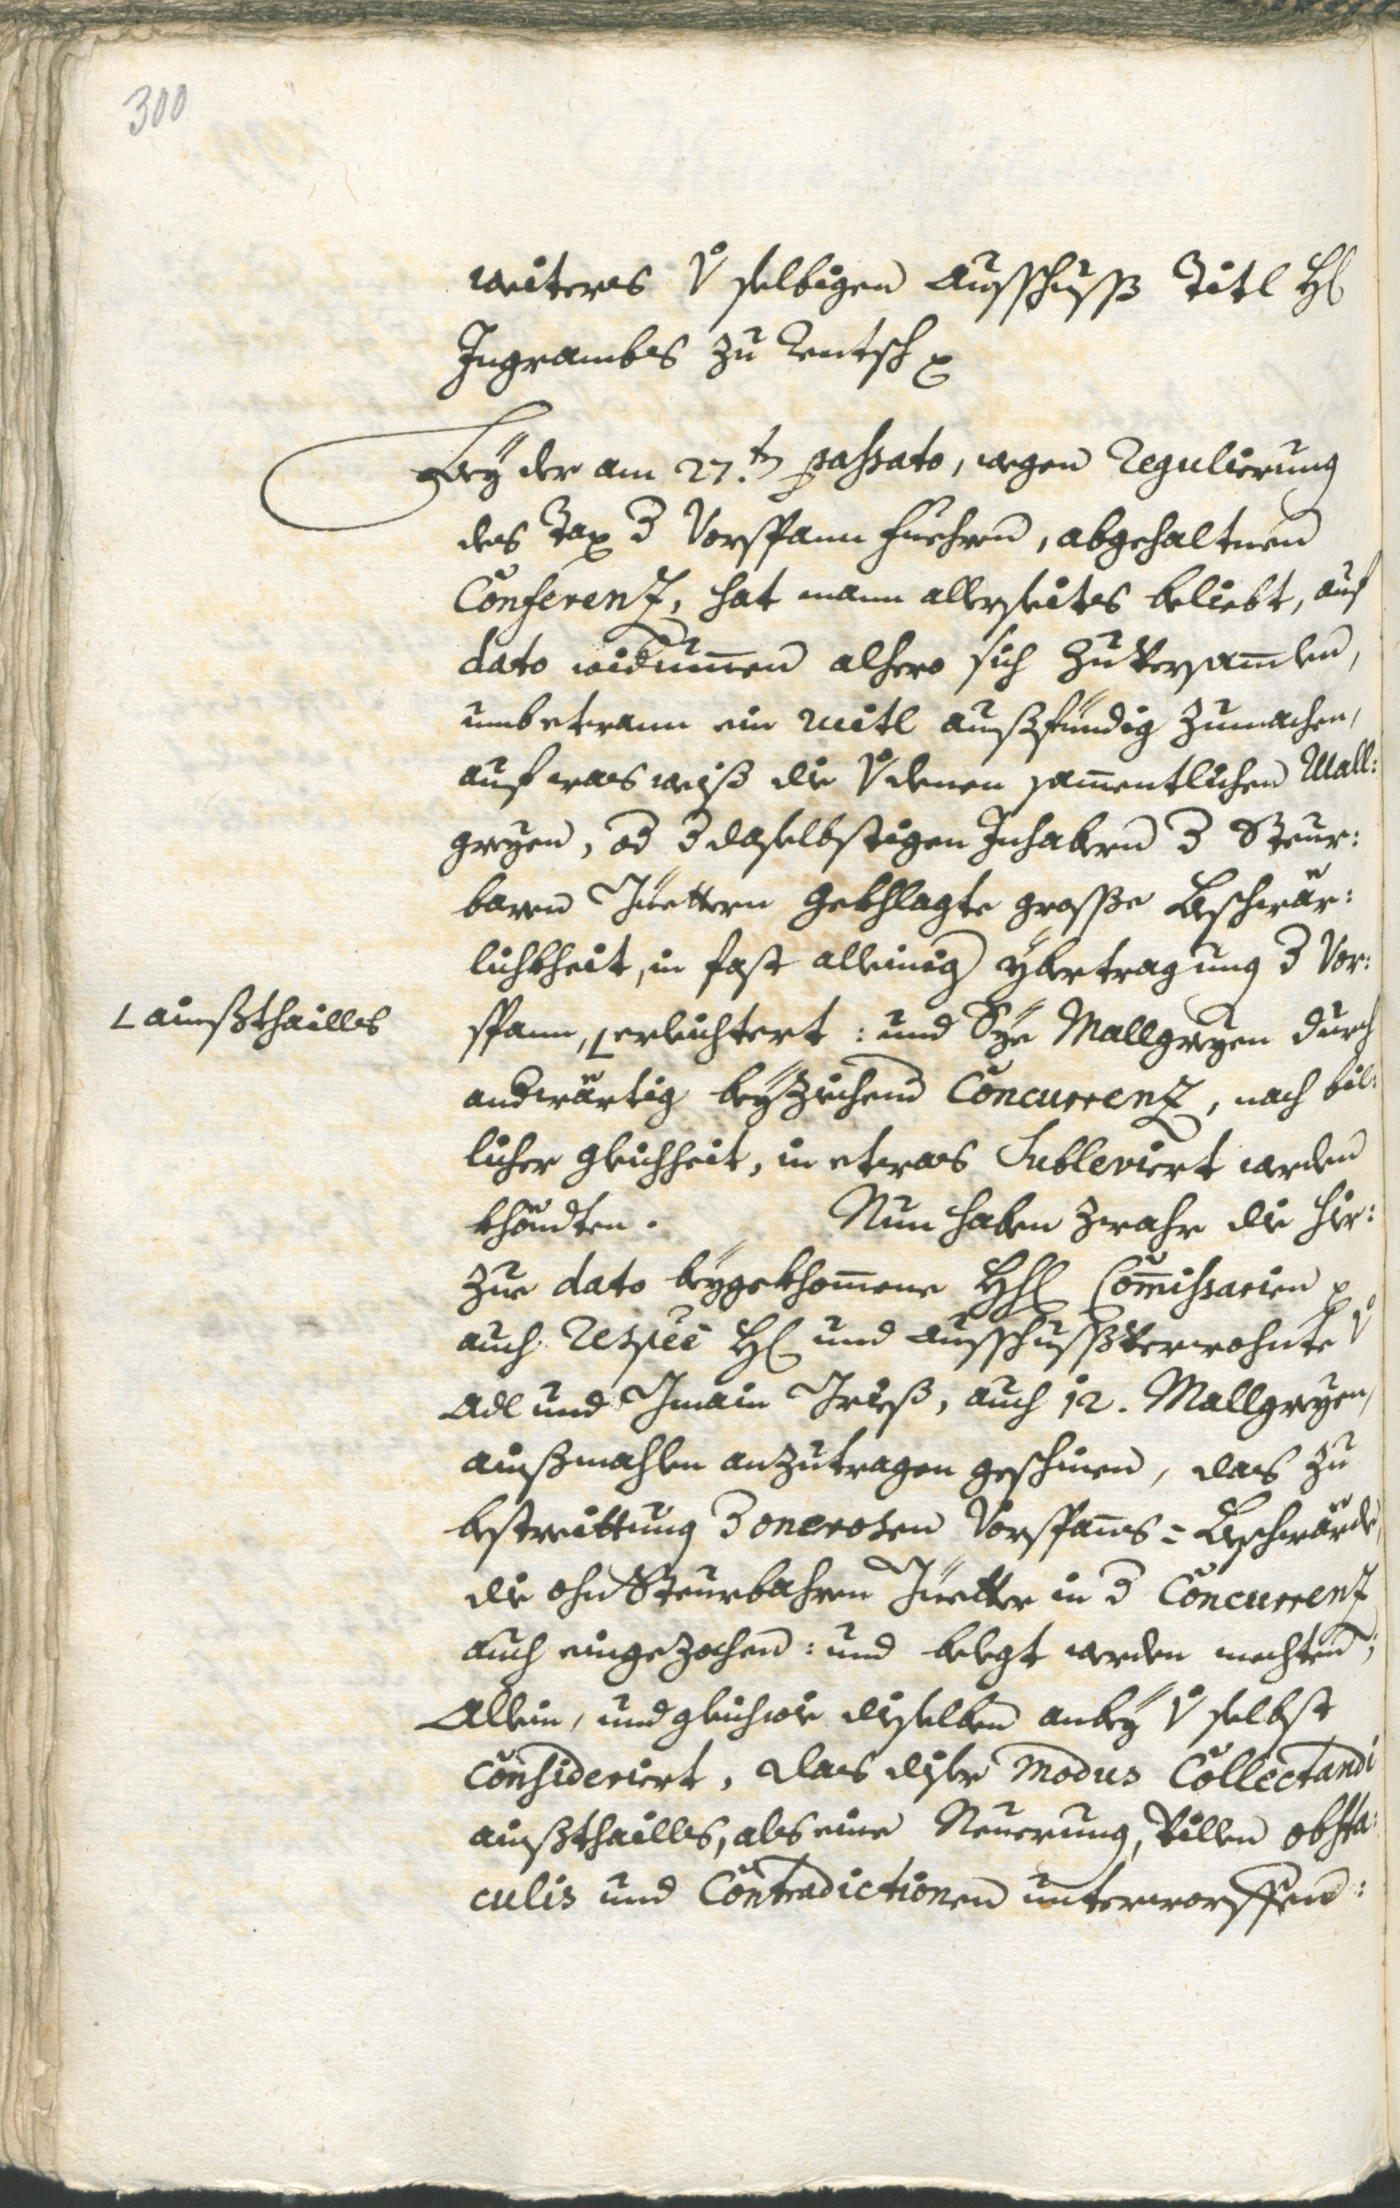 300
weiters v selbigen Ausschuss Titl H
Ingrambs zu Rentsch
Bey der am 27.ten passato, wegen Regulierung
des Tax d Vorspann fuehren, abgehaltnen
Conferenz, hat mann allerseites beliebt, auf
dato widumen alhero sich zuversamlen,
umb etwann ein Mitl ausfündig zumachen,
auf was weiß die v denen samentlichen Mall:
greyen, od d daselbstigen Inhabern d Steur:
baren Güettern gekhlagte grosse Beschwär:
lichkheit, in fast alleinig ybertragung d Vor:
L ainßthailles
spann, L erleichtert: und Sye Mallgreyen durch
andwärtig beyziehend Concurrenz, nach bil:
licher gleichheit, in etwas Subleviert werden
khöndten. Nun haben zwahr die hier:
zue dato beygekhomene HH Comissarien
auch respec H und Ausschussverwohnte v
Adl und Gmain Grieß, auch 12. Mallgreyen,
ainßmahlen anzutragen geschinen, das zu
bestreittung d onerosen Vorspans=Beschwärde
die ohn Steurbahren Güetter in d Concurrenz
auch eingezochen: und belegt werden mechten;
Allein, und gleichwie dieselben anbey v selbst
Consideriert, das diser Modus Collectandi
ainßthailles, als eine Neuerung, villen obsta:
culis und Contradictionen unterworffen: